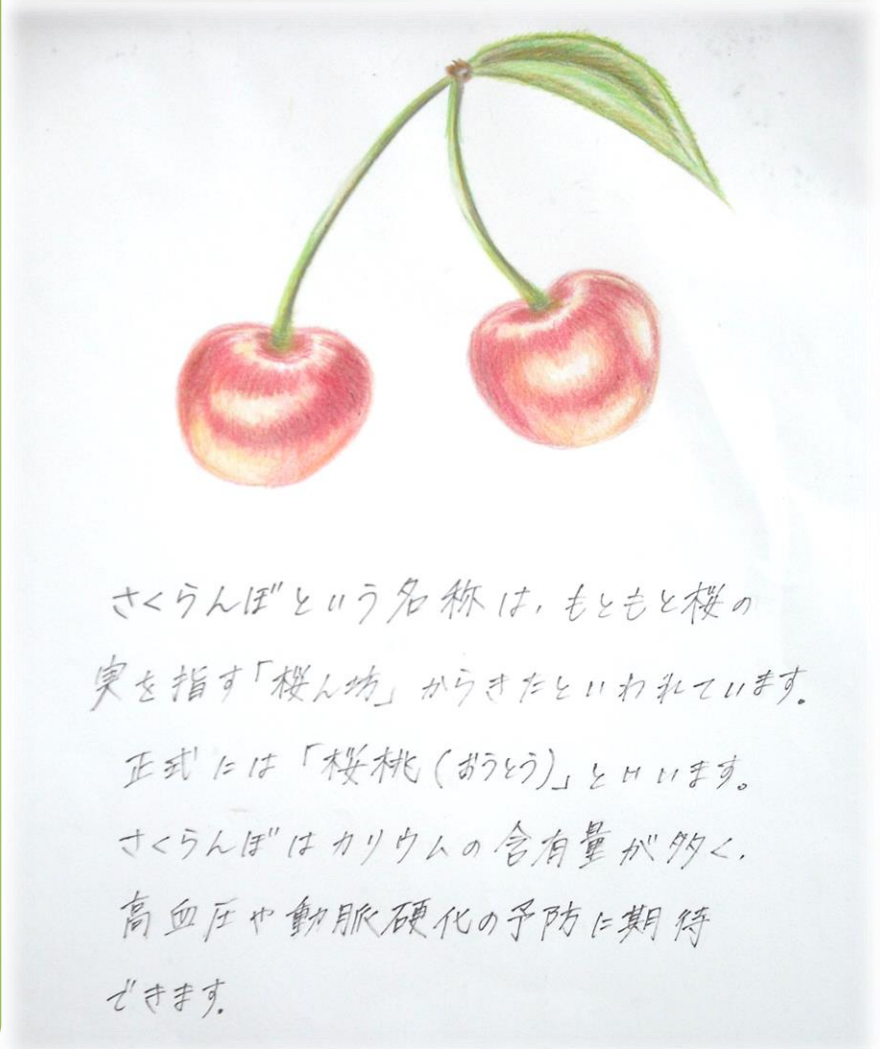 さくらんぼという名称は、もともと桜の
実を指す「桜ん坊」からきたといわれています。
正式には「桜桃(おうとう)」といいます。
さくらんぼはカリウムの含有量が多く、
高血圧や動脈硬化の予防に期待
できます。